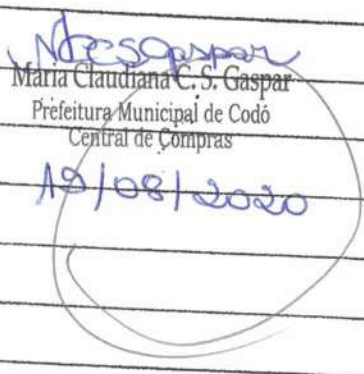 MCCSGaspar
Maria Claudiana C. S. Gaspar
Prefeitura Municipal de Codó
Central de Compras
19/08/2020